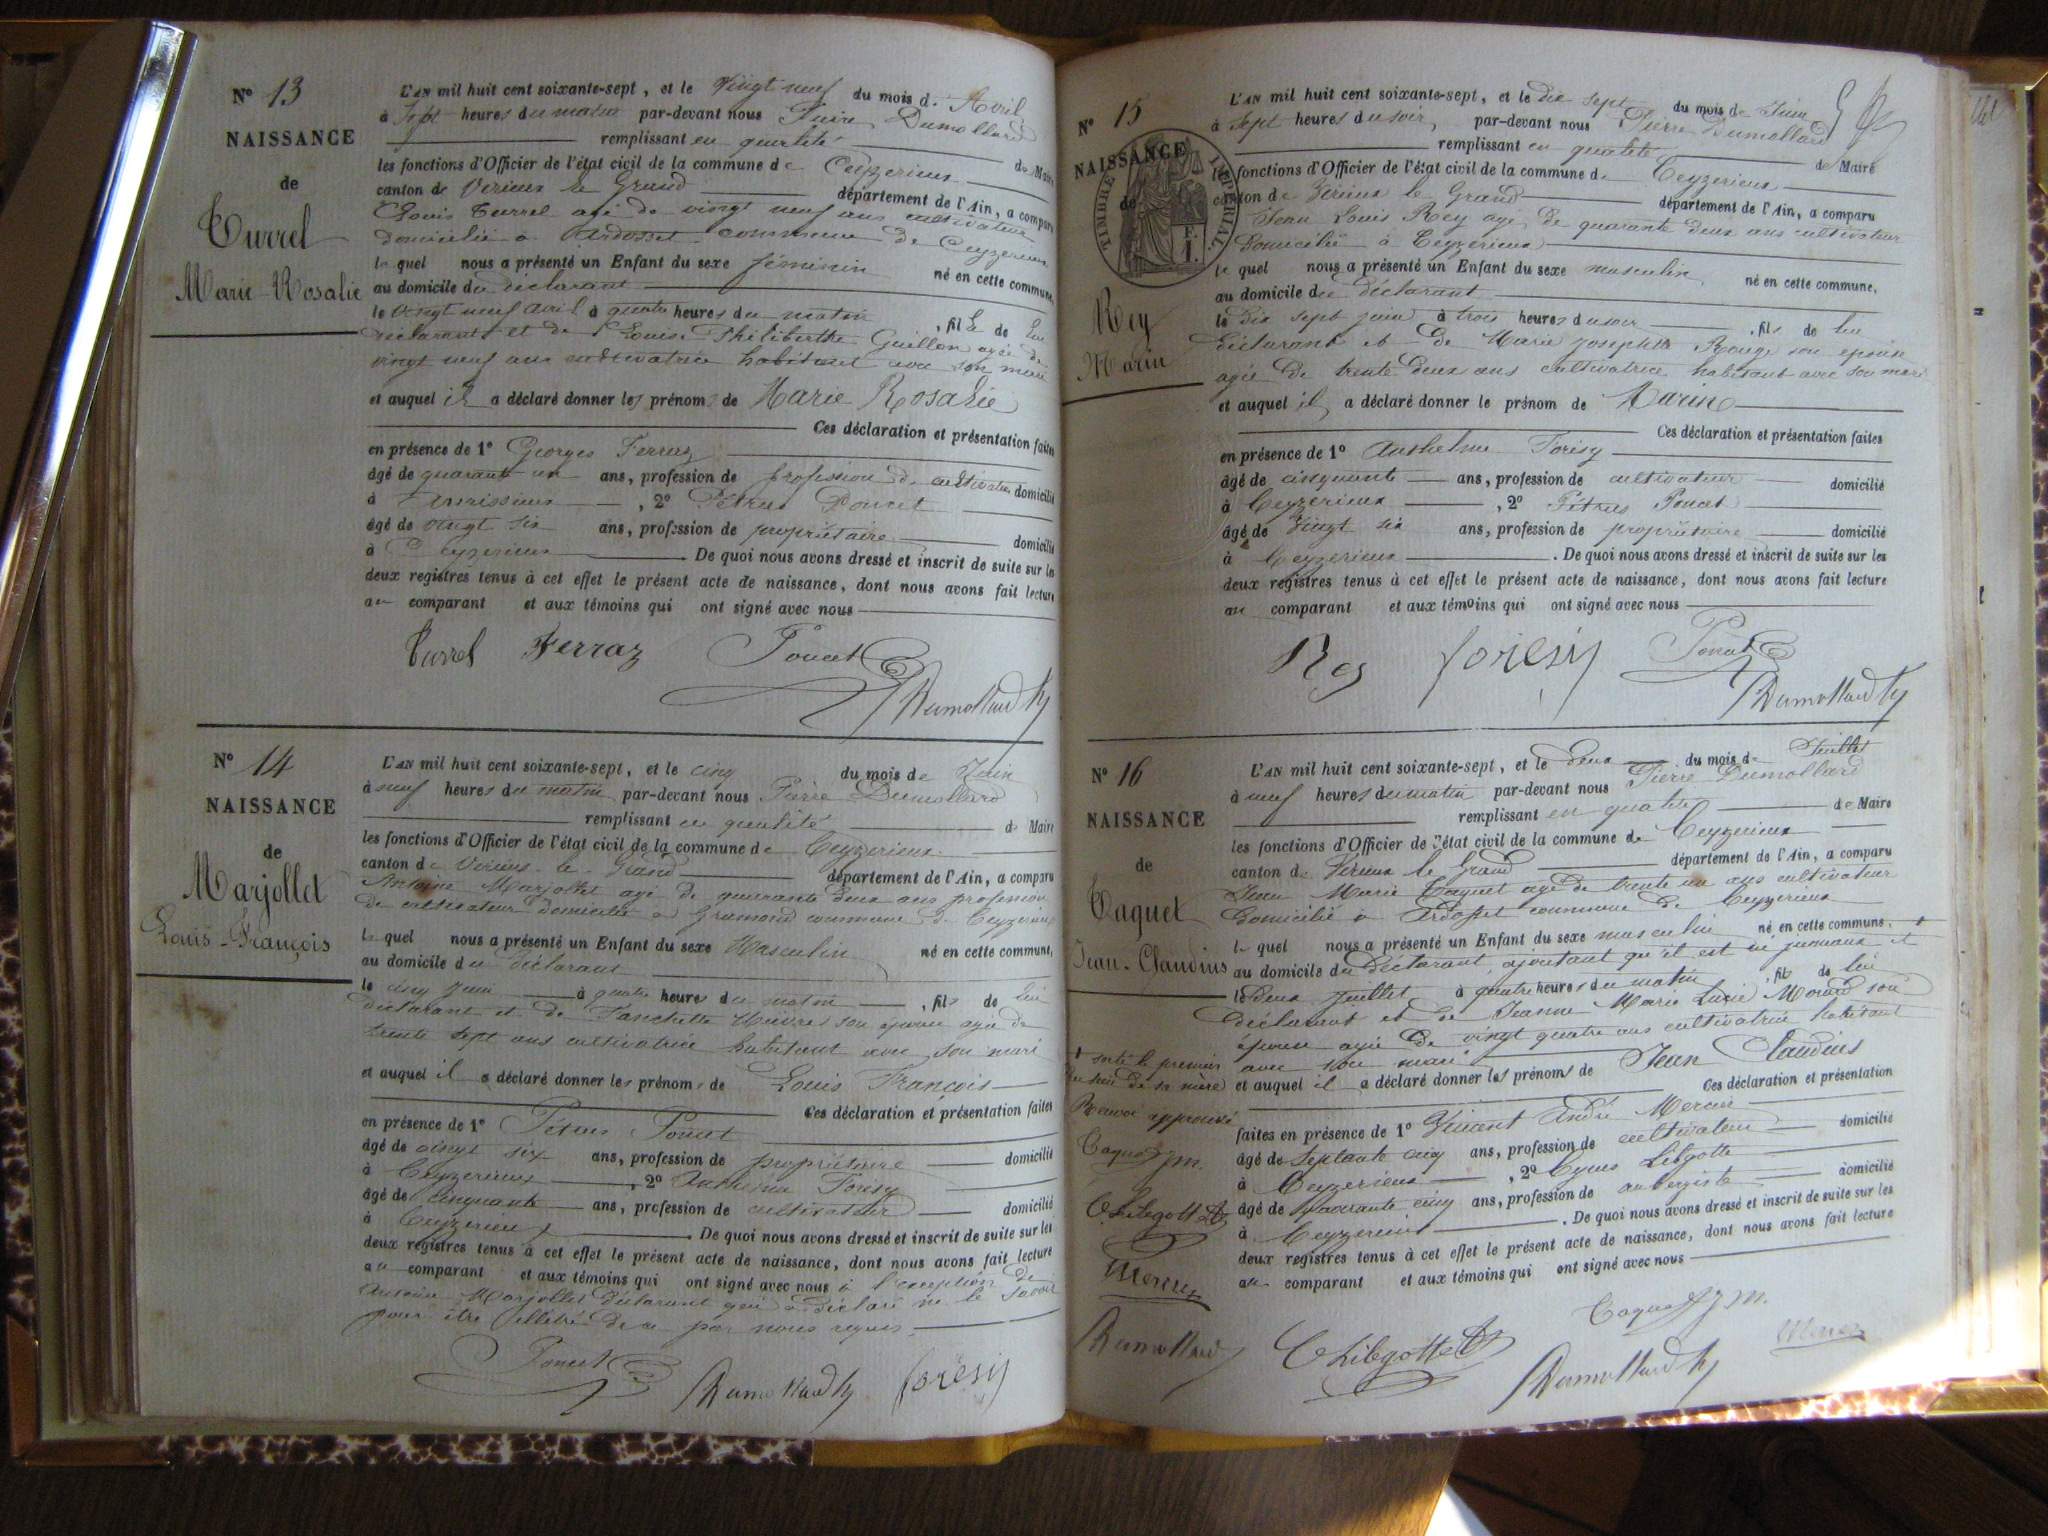 N° 13
NAISSANCE
de
Turrel
Marie-Rosalie
L'AN mil huit cent soixante-sept, et le vingt neuf du mois d'Avril
à sept heures du matin par-devant nous Pierre Dumollard
remplissant en qualité de Maire
les fonctions d'Officier de l'état civil de la commune de Ceyzerieux
canton de Virieux le Grand département de l'Ain, a comparu
Louis Turrel agé de vingt neuf ans cultivateur
domicilié à Ardosset commune de Ceyzerieux
le quel nous a présenté un Enfant du sexe féminin né en cette commune,
au domicile du déclarant
le vingt neuf avril à quatre heures du matin, fille de lui
déclarant et de Louise Philiberthe Guillon agée de
vingt neuf ans cultivatrice habitant avec son mari
et auquel il a déclaré donner les prénoms de Marie Rosalie
Ces déclaration et présentation faites
en présence de 1° Georges Ferraz
âgé de quarante un ans, profession de profession de cultivateur domicilié
à , 2° Pétrus Poncet
âgé de vingt six ans, profession de propriétaire domicilié
à Ceyzerieux. De quoi nous avons dressé et inscrit de suite sur les
deux registres tenus à cet effet le présent acte de naissance, dont nous avons fait lecture
au comparant et aux témoins qui ont signé avec nous
Turrel Ferraz Poncet
Dumollard
N° 14
NAISSANCE
de
Marjollet
Louis-François
L'AN mil huit cent soixante-sept, et le cinq du mois de Juin
à neuf heures du matin par-devant nous Pierre Dumollard
remplissant en qualité de Maire
les fonctions d'Officier de l'état civil de la commune de Ceyzerieux
canton de Virieux-le-Grand département de l'Ain, a comparu
Antoine Marjollet agé de quarante deux ans profession
de cultivateur domicilié à Gramond commune de Ceyzerieux
le quel nous a présenté un Enfant du sexe Masculin né en cette commune,
au domicile du déclarant
le cinq juin à quatre heures du matin, fils de lui
déclarant et de Fanchette son épouse agée de
trente sept ans cultivatrice habitant avec son mari
et auquel il a déclaré donner les prénoms de Louis François
Ces déclaration et présentation faites
en présence de 1° Pétrus Poncet
âgé de vingt six ans, profession de propriétaire domicilié
à Ceyzerieux, 2° Anthelme Forésy
âgé de cinquante ans, profession de cultivateur domicilié
à Ceyzerieux. De quoi nous avons dressé et inscrit de suite sur les
deux registres tenus à cet effet le présent acte de naissance, dont nous avons fait lecture
au comparant et aux témoins qui ont signé avec nous à l'exception de
Antoine Marjollet déclarant qui a déclaré ne le savoir
pour être illétré de ce par nous requis.
Poncet Dumollard forésy
N° 15
NAISSANCE
de
TIMBRE IMPÉRIAL
F.
1.
Rey
Marin
L'AN mil huit cent soixante-sept, et le dix sept du mois de Juin
à sept heures du soir, par-devant nous Pierre Dumollard
remplissant en qualité de Maire
les fonctions d'Officier de l'état civil de la commune de Ceyzerieux
canton de Virieux le Grand département de l'Ain, a comparu
Jean Louis Rey agé de quarante deux ans cultivateur
domicilié à Ceyzerieux
le quel nous a présenté un Enfant du sexe masculin né en cette commune,
au domicile du déclarant
le dix sept juin à trois heures du soir, fils de lui
déclarant et de Marie Josephte Rouge son épouse
agée de trente deux ans cultivatrice habitant avec son mari
et auquel il a déclaré donner le prénom de Marin
Ces déclaration et présentation faites
en présence de 1° Anthelme Forésy
âgé de cinquante ans, profession de cultivateur domicilié
à Ceyzerieux, 2° Pétrus Poncet
âgé de vingt six ans, profession de propriétaire domicilié
à Ceyzerieux. De quoi nous avons dressé et inscrit de suite sur les
deux registres tenus à cet effet le présent acte de naissance, dont nous avons fait lecture
au comparant et aux témoins qui ont signé avec nous
Rey forésy Poncet
Dumollard
N° 16
NAISSANCE
de
Taquet
Jean-Claudius
L'AN mil huit cent soixante-sept, et le deux du mois de Juillet
à neuf heures du matin par-devant nous Pierre Dumollard
remplissant en qualité de Maire
les fonctions d'Officier de l'état civil de la commune de Ceyzerieux
canton de Virieux le Grand département de l'Ain, a comparu
Jean Marie Taquet agé de trente un ans cultivateur
domicilié à Ardosset commune de Ceyzerieux
le quel nous a présenté un Enfant du sexe masculin né en cette commune,
au domicile du déclarant, ajoutant qu'il est né jumeaux et
le deux juillet à quatre heures du matin, fils de lui
déclarant et de Jeanne Marie Lucie Morand son
épouse agée de vingt quatre ans cultivatrice habitant
avec son mari
et auquel il a déclaré donner les prénoms de Jean Claudius
Ces déclaration et présentation
faites en présence de 1° Vincent André Mercier
âgé de septante cinq ans, profession de cultivateur domicilié
à Ceyzerieux, 2° Cyrus Libgotte
âgé de quarante cinq ans, profession de aubergiste domicilié
à Ceyzerieux. De quoi nous avons dressé et inscrit de suite sur les
deux registres tenus à cet effet le présent acte de naissance, dont nous avons fait lecture
au comparant et aux témoins qui ont signé avec nous
sorti le premier
du sein de sa mère
Renvoi approuvé
Taquet jm.
C Libgotte
Mercier
Dumollard
Taquet jm.
C Libgotte
Dumollard
Mercier